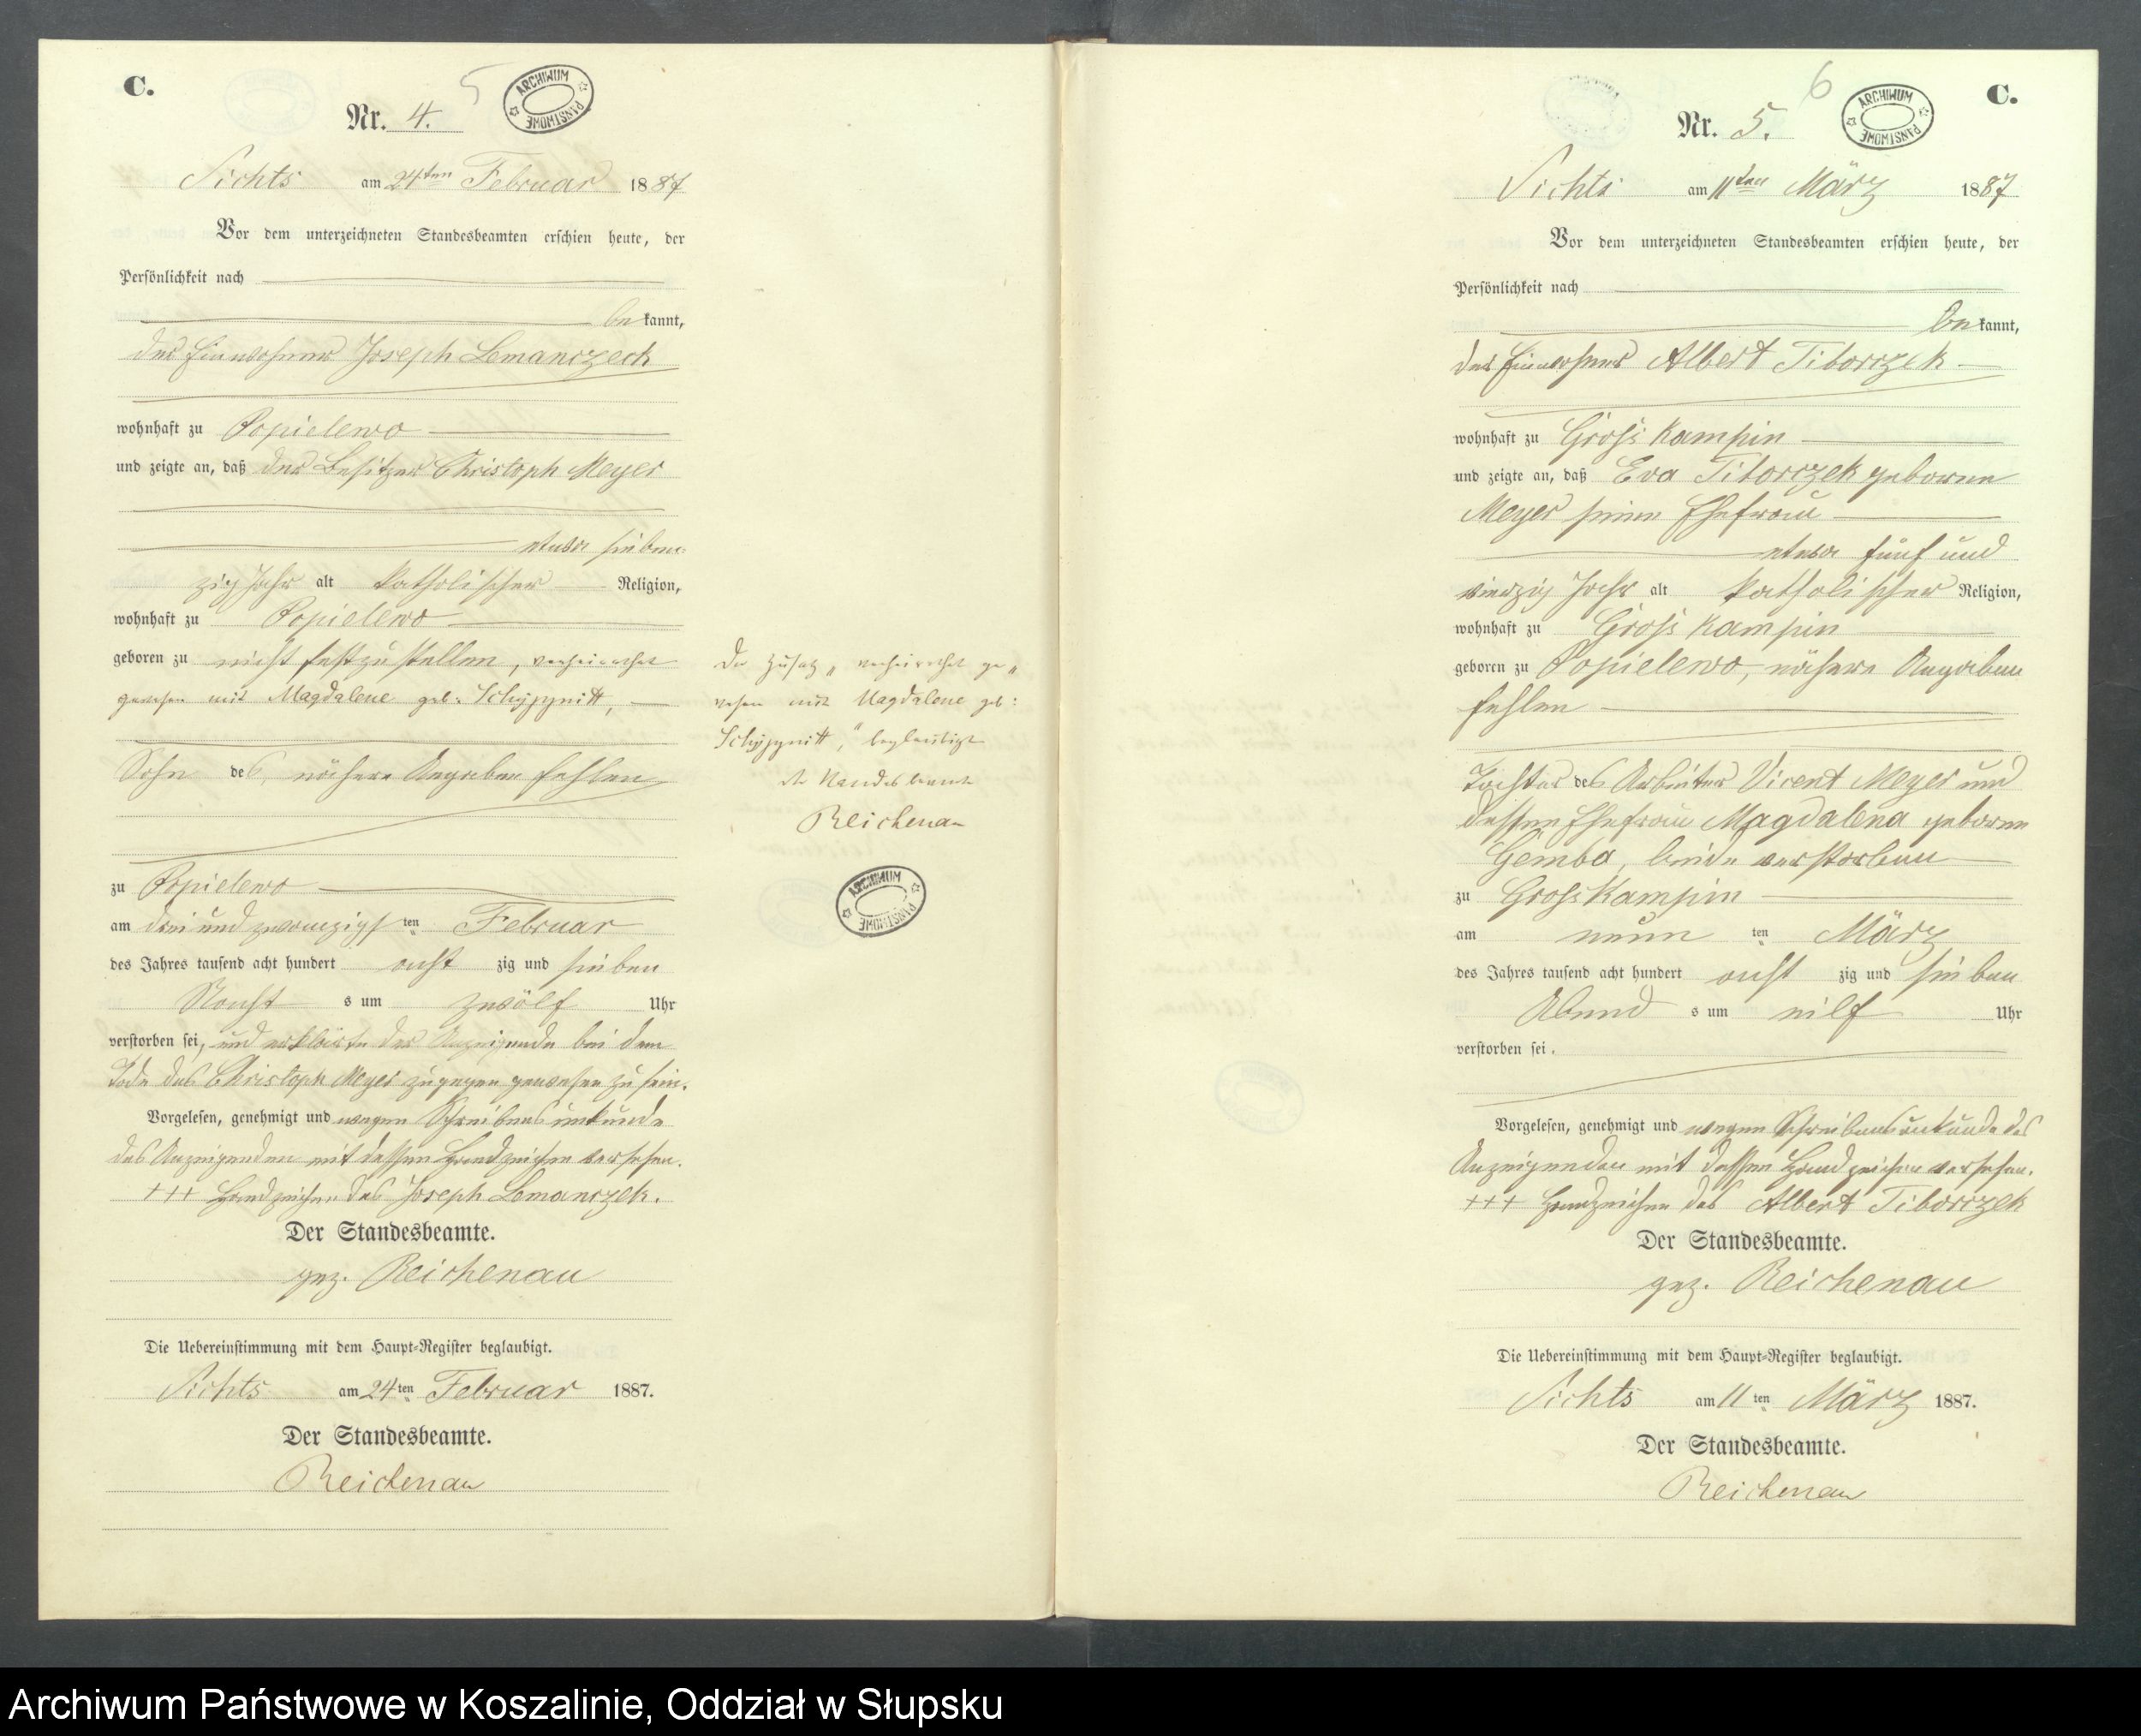 C.
5
Nr. 4.
ARCHIWUM PAŃSTWOWE
Lichts am 24ten Februar 1887
Vor dem unterzeichneten Standesbeamten erschien heute, der
Persönlichkeit nach
bekannt,
der Einwohner Joseph Lemanczeck
wohnhaft zu Popielewo
und zeigte an, daß der Besitzer Christoph Meyer
etwa sieben-
zig Jahr alt katholischer Religion,
wohnhaft zu Popielewo
geboren zu nicht festzustellen, verheirathet
gewesen mit Magdalene geb.
Sohn des, nähere Angaben fehlen
zu Popielewo
am drei und zwanzigsten Februar
des Jahres tausend acht hundert achtzig und sieben
Nachts um zwölf Uhr
verstorben sei, und erklärte der Anzeigende bei dem
Tode des Christoph Meyer zugegen gewesen zu sein.
Vorgelesen, genehmigt und wegen Schreibensunkunde
des Anzeigenden mit dessen Handzeichen versehen.
+++ Handzeichen des Joseph Lemanczek.
Der Standesbeamte.
gez. Reichenau
Die Uebereinstimmung mit dem Haupt-Register beglaubigt.
Lichts am 24ten Februar 1887.
Der Standesbeamte.
Reichenau
Der Zusatz „verheirathet ge-
wesen mit Magdalene geb:
beglaubigt
der Standesbeamte
Reichenau
ARCHIWUM PAŃSTWOWE
6
C.
Nr. 5.
ARCHIWUM PAŃSTWOWE
Lichts am 11ten März 1887
Vor dem unterzeichneten Standesbeamten erschien heute, der
Persönlichkeit nach
bekannt,
der Einwohner Albert Tiborczek
wohnhaft zu Groß Kampin
und zeigte an, daß Eva Tiborczek geborene
Meyer seine Ehefrau
etwa fünf und
vierzig Jahr alt katholischer Religion,
wohnhaft zu Groß Kampin
geboren zu Popielewo, nähere Angaben
fehlen
Tochter des Arbeiter Vicent Meyer und
dessen Ehefrau Magdalena geborene
Gemba, beide verstorben
zu Groß Kampin
am neunten März
des Jahres tausend acht hundert achtzig und sieben
Abends um elf Uhr
verstorben sei.
Vorgelesen, genehmigt und wegen Schreibensunkunde des
Anzeigenden mit dessen Handzeichen versehen.
+++ Handzeichen des Albert Tiborczek
Der Standesbeamte.
gez. Reichenau
Die Uebereinstimmung mit dem Haupt-Register beglaubigt.
Lichts am 11ten März 1887.
Der Standesbeamte.
Reichenau
Archiwum Państwowe w Koszalinie, Oddział w Słupsku